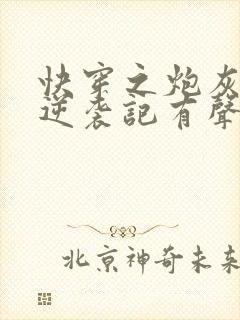 快穿之炮灰
逆袭記有聲
北京神奇未来